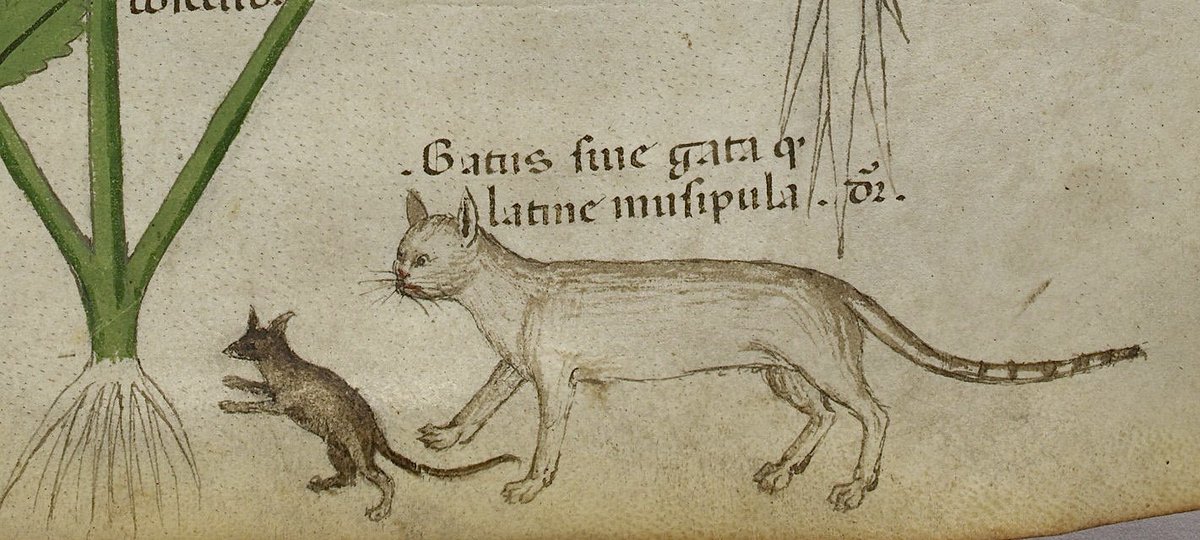 .Gatus siue gata q̇
latine musipula . dr̄.